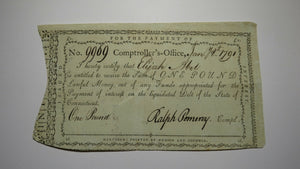 FOR THE PAYMENT OF
No. 9969 Comptroller's-Office, 1791
I hereby certify that Elijah
is entitled to receive the Sum of ONE POUND
Lawful Money, out of any Funds appropriated for the
Payment of Interest on the Liquidated Debt of the State of
Connecticut.
One Pound Ralph Pomeroy Compt.
HARTFORD: PRINTED BY HUDSON AND GOODWIN.